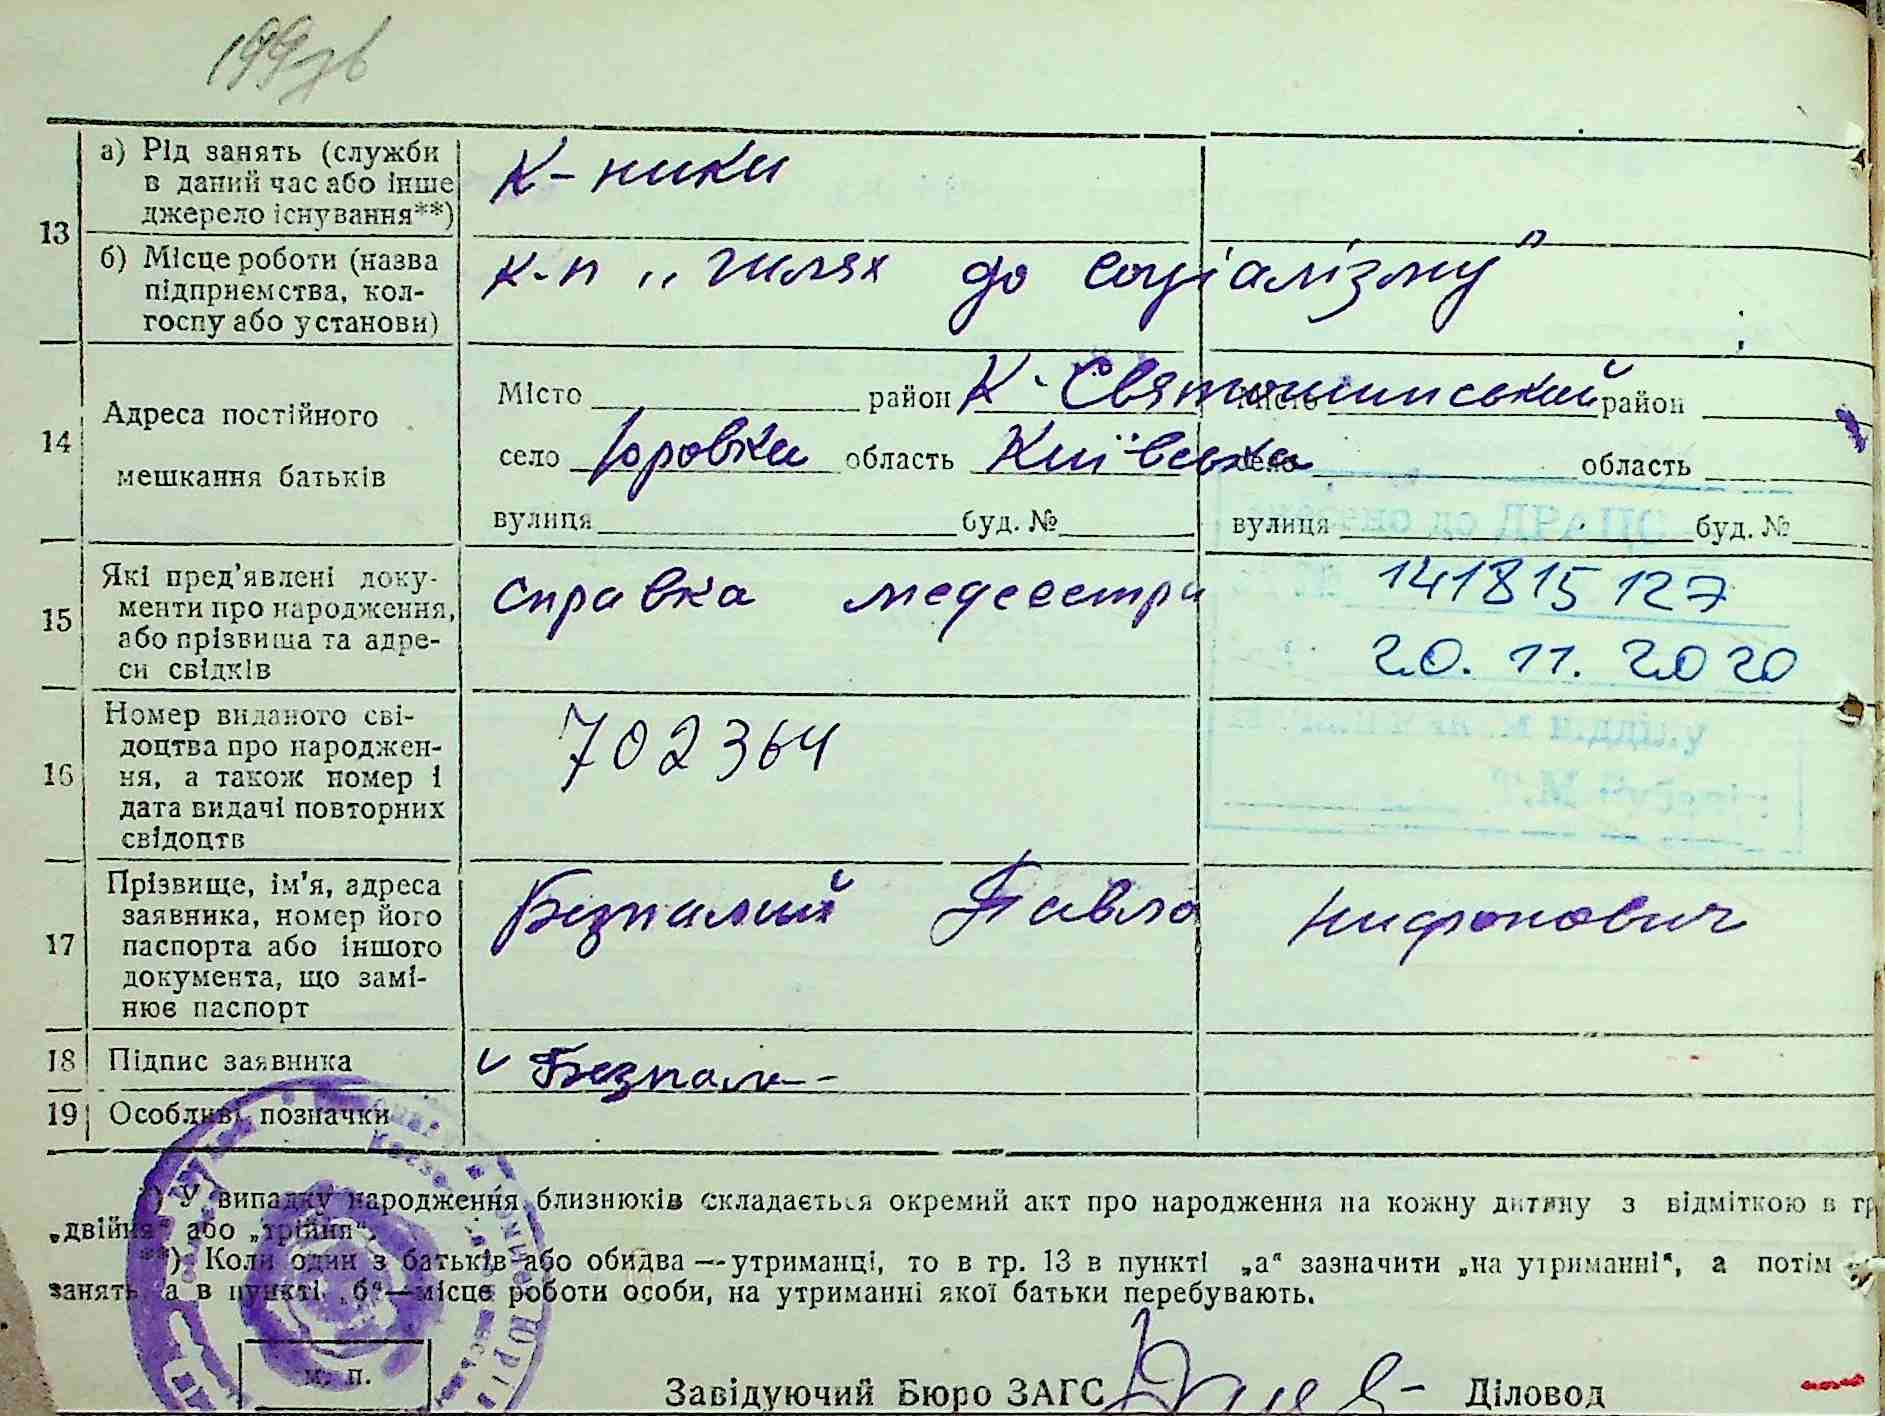 199зв
13
а) Рід занять (служби
в даний час або інше
джерело існування**)
К-ники
б) Місце роботи (назва
підприємства, кол-
госпу або установи)
к-п „Шлях до соціалізму"
14
Адреса постійного
мешкання батьків
Місто район К. Святошинський
Місто район
село Юровка область Київська
село область
вулиця буд. №
вулиця буд. №
15
Які пред'явлені доку-
менти про народження,
або прізвища та адре-
си свідків
справка медсестри
до ДРАЦС
№ 141815127
20.11.2020
відділу
Т.М.
16
Номер виданого сві-
доцтва про народжен-
ня, а також номер і
дата видачі повторних
свідоцтв
702364
17
Прізвище, ім'я, адреса
заявника, номер його
паспорта або іншого
документа, що замі-
нює паспорт
Безпалий Павло Нифонович
18
Підпис заявника
Безпал
19
Особливі позначки
*) У випадку народження близнюків складається окремий акт про народження на кожну дитину з відміткою в гр
„двійня" або „трійня".
**) Коли один з батьків або обидва — утриманці, то в гр. 13 в пункті „а" зазначити „на утриманні", а потім
занять, а в пункті „б"—місце роботи особи, на утриманні якої батьки перебувають.
М. П.
Завідуючий Бюро ЗАГС
Діловод